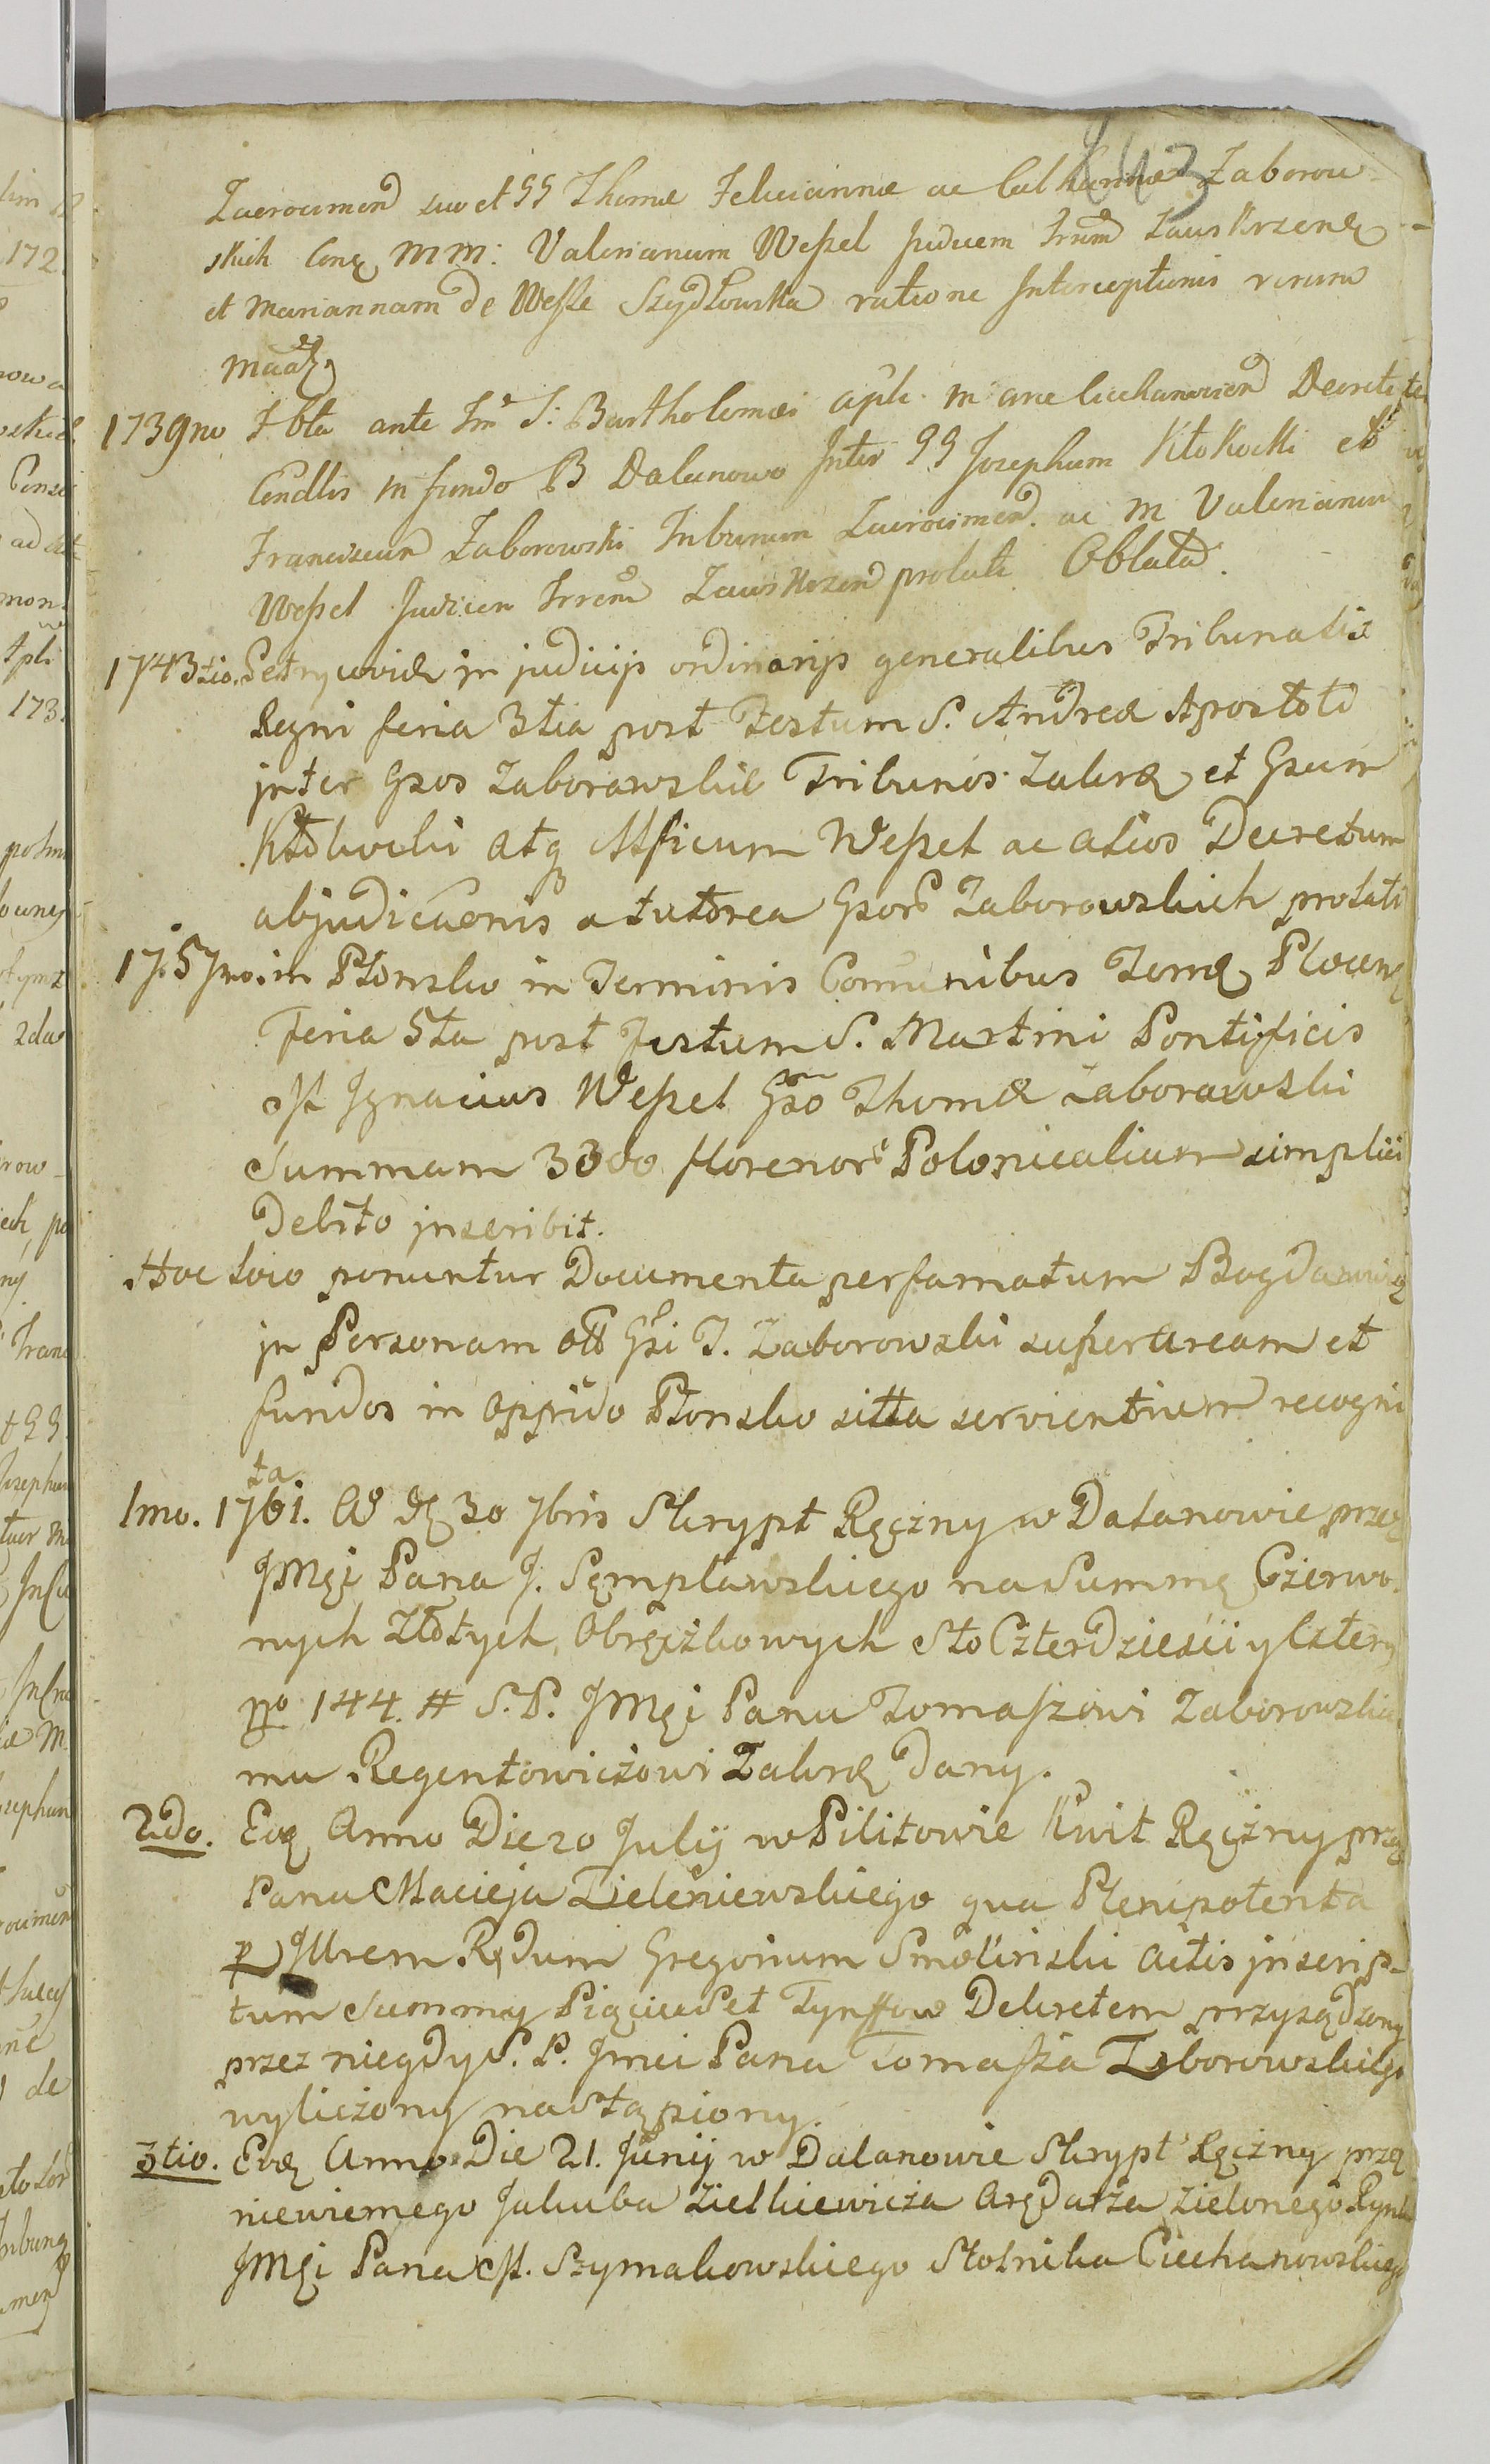 Zacrocimen suo et GG Thomæ Feliciannæ ac Catharinæ Zaborow-
skich Conq MM: Valerianum Weßel Judicem Trrum Zauskrzeng
et Mariannam de Weßle Szydłowska ratione Interceptionis rerum
1739no Fbta ante Fm S: Bartholomæi Apli in arce Ciechanovien Decreti
Condlis in fundo B Dalanowo Inter GG Josephum Kłokocki et
Franciscum Zaborowski Tribunum Zacrocimen. ac M Valerianum
Weßel Judicem Trrem Zauskrzen prolati Oblata.
1743tio. Petrycoviæ jn judicijs ordinarijs generalibus Tribunalis
Regni feria 3tia post Festum S. Andreæ Apostoli
jnter Gsos Zaborowskie Tribunos Zakro et Gsum
Kłokocki atq Mficum Weßel ac alios Decretum
abjudicaonis a tutorea Gsor Zaborowskich prolati
1757mo. in Płonsko in Terminis Comunibus Terræ Plocen
Feria 5ta post Festum S. Martini Pontificis
M Ignacius Weßel Gso Thomæ Zaborowski
Summam 3300 florenor Polonicalium simplici
Debito jnscribit.
Hoc loco ponuntur Documenta per famatum Bogdanowicz
jn Personam Gsi T. Zaborowski super aream et
fundos in oppido Płonsko sitta servientium recogni
ta
1mo. 1761. A D 30 7bris Skrypt Ręczny w Dalanowie przez
JMci Pana J. Sęmpławskiego na Summę Czerwo-
nych Złotych, Obrączkowych Sto Czterdziesci y Cztery
No 144. # S. P. JMci Panu Tomaszowi Zaborowskie
mu Regentowiczowi Zakro Dany.
2do. Eod Anno Die 20 Julij w Pilitowie Kwit Ręczny prze
Pana Macieja Zieleniewskiego qua Plenipotenta
p JMrem Rdum Gregorium Smolinski Actis jnscrip-
tum Summy Pięciuset Tynffow Dekretem przysądzony
przez niegdy S. P. Jmci Pana Tomasza Zaborowskiego
wyliczony nastąpiony.
3tio. Eod Anno Die 21. Junij w Dalanowie Skrypt Ręczny prze
niewiernego Jakuba Zielkiewicza Arędarza Zielonego Rynku
JMci Pana M. Szymakowskiego Stolnika Ciechanowskiego